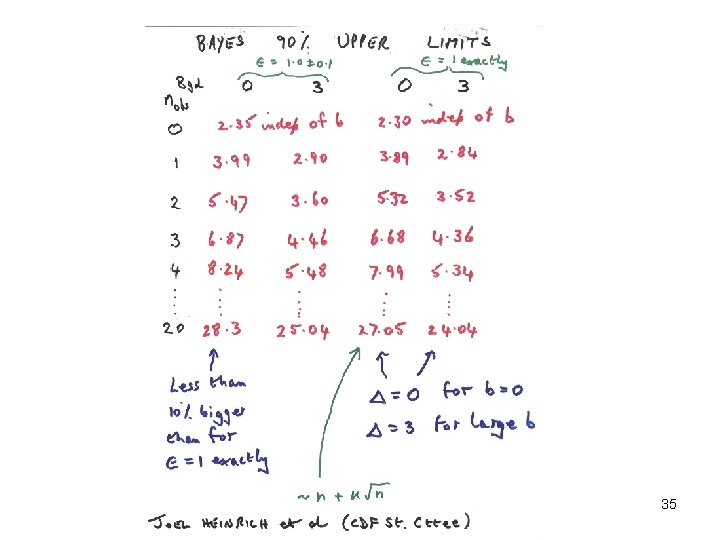 BAYES 90% UPPER LIMITS
ε = 1.0±0.1 ε = 1 exactly
Bgd 0 3 0 3
nobs
0 2.35 indep of b 2.30 indep of b
1 3.99 2.90 3.89 2.84
2 5.47 3.60 5.32 3.52
3 6.87 4.46 6.68 4.36
4 8.24 5.48 7.99 5.34
20 28.3 25.04 27.05 24.04
Less than
10% bigger
than for
ε = 1 exactly
Δ = 0 for b=0
Δ = 3 for large b
~ n + κ√n
JOEL HEINRICH et al (CDF St. Cttee)
35